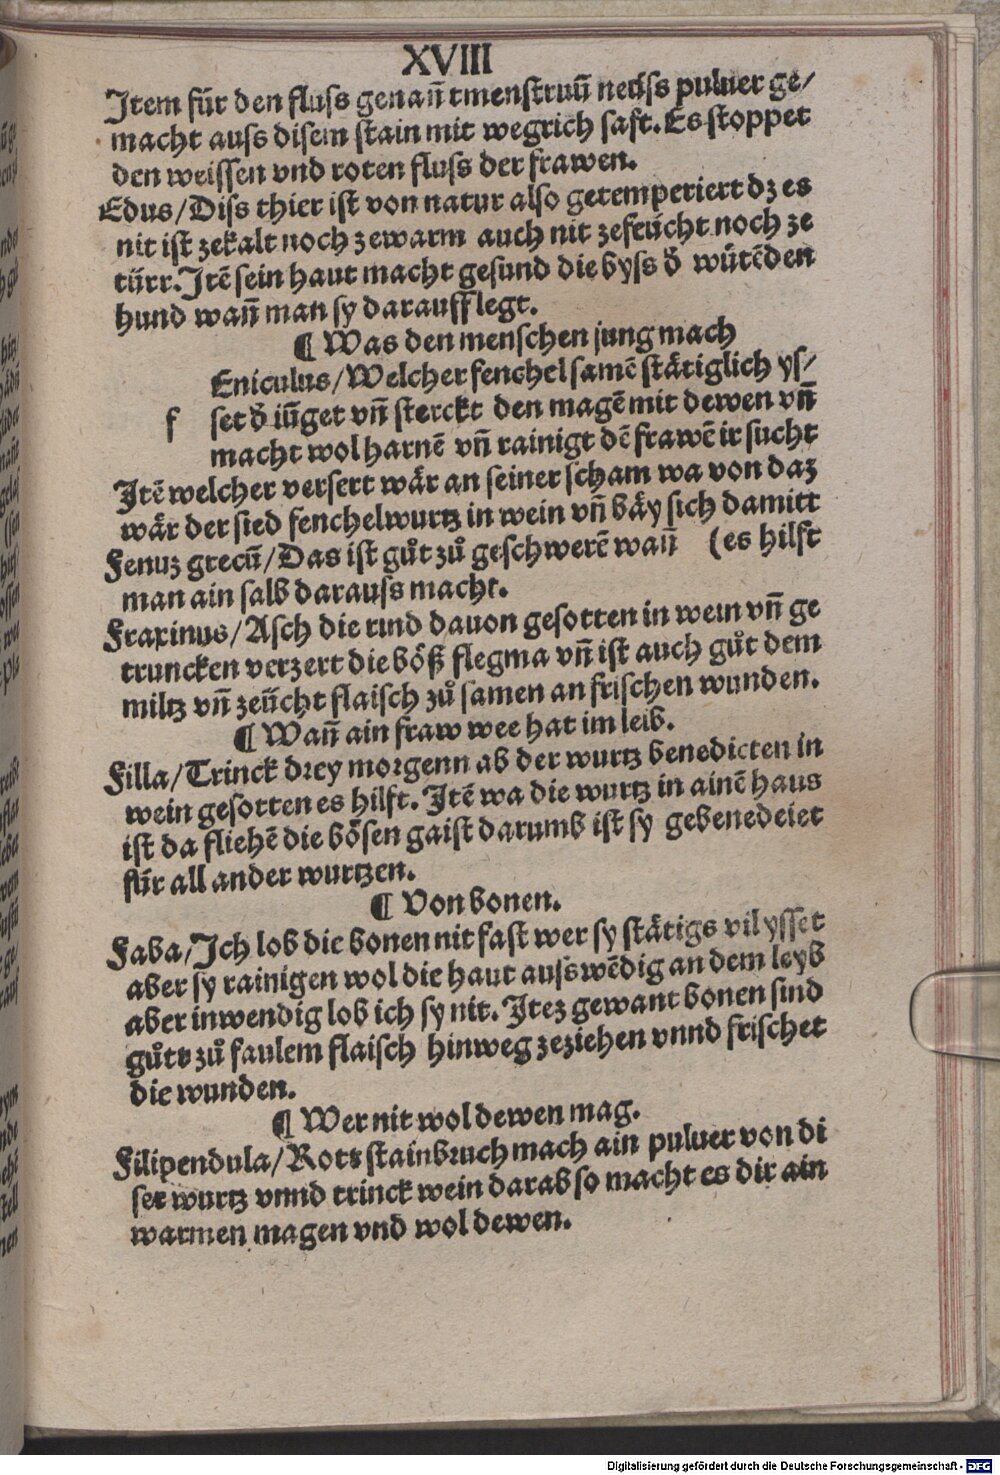 XVIII
Jtem für den fluſs genañt menſtruũ neüſs puluer ge/
macht auſs diſem ſtain mit wegrich ſaft. Es ſtoppet
den weiſſen vnd roten fluſs der frawen.
Edus/Diſs thier iſt von natur alſo getemperiert dz es
nit iſt zekalt noch zewarm auch nit zefeücht noch ze
türr. Jtē ſein haut macht geſund die byſs d̓ wütēden
hund wañ man ſy darauff legt.
¶ Was den menſchen jung mach
Eniculus/Welcher fenchel ſamē ſtätiglich yſ/
f ſet d̓ iüget vñ ſterckt den magē mit dewen vñ
macht wol harnē vñ rainigt dē frawē ir ſucht
Jtē welcher verſert wär an ſeiner ſcham wa von daz
wär der ſied fenchelwurtz in wein vñ bäy ſich damitt
Fenuz grecũ/Das iſt gůt zů geſchwerē wañ (es hilft
man ain ſalb darauſs macht.
Fraxinus/Aſch die rind dauon geſotten in wein vñ ge
truncken verzert die böß flegma vñ iſt auch gůt dem
miltz vñ zeücht flaiſch zů ſamen an friſchen wunden.
¶ Wañ ain fraw wee hat im leib.
Filla/Trinck drey morgenn ab der wurtz benedicten in
wein geſotten es hilft. Jtē wa die wurtz in ainē haus
iſt da fliehē die böſen gaiſt darumb iſt ſy gebenedeiet
für all ander wurtzen.
¶ Von bonen.
Faba/Jch lob die bonen nit faſt wer ſy ſtätigs vil yſſet
aber ſy rainigen wol die haut auſswēdig an dem leyb
aber inwendig lob ich ſy nit. Jtez gewant bonen ſind
gůte zů faulem flaiſch hinweg zeziehen vnnd friſchet
die wunden.
¶ Wer nit wol dewen mag.
Filipendula/Rote ſtainbruch mach ain puluer von di
ſer wurtz vnnd trinck wein darab ſo macht es dir ain
warmen magen vnd wol dewen.
Digitalisierung gefördert durch die Deutsche Forschungsgemeinschaft - DFG